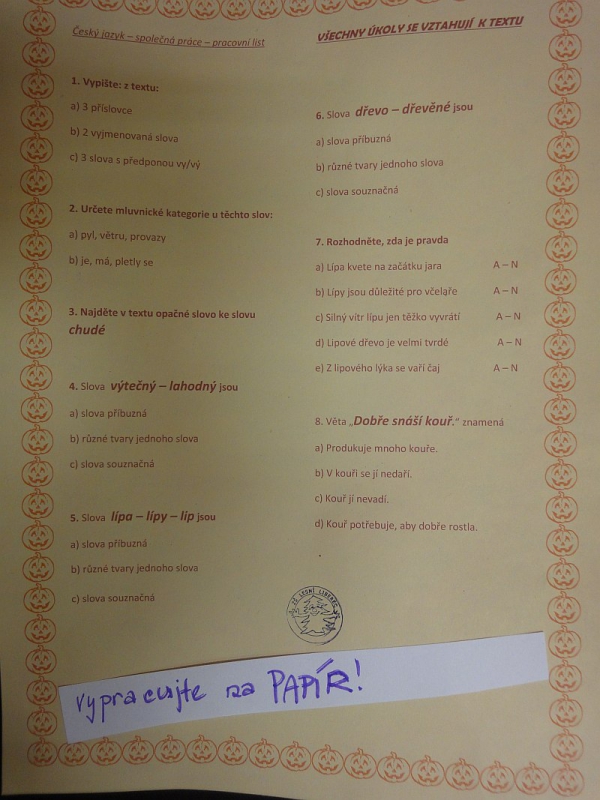 Český jazyk – společná práce – pracovní list
1. Vypište: z textu:
a) 3 příslovce
b) 2 vyjmenovaná slova
c) 3 slova s předponou vy/vý
2. Určete mluvnické kategorie u těchto slov:
a) pyl, větru, provazy
b) je, má, pletly se
3. Najděte v textu opačné slovo ke slovu
chudé
4. Slova výtečný – lahodný jsou
a) slova příbuzná
b) různé tvary jednoho slova
c) slova souznačná
5. Slova lípa – lípy – lip jsou
a) slova příbuzná
b) různé tvary jednoho slova
c) slova souznačná
VŠECHNY ÚKOLY SE VZTAHUJÍ K TEXTU
6. Slova dřevo – dřevěné jsou
a) slova příbuzná
b) různé tvary jednoho slova
c) slova souznačná
7. Rozhodněte, zda je pravda
a) Lípa kvete na začátku jara A – N
b) Lípy jsou důležité pro včelaře A – N
c) Silný vítr lípu jen těžko vyvrátí A – N
d) Lipové dřevo je velmi tvrdé A – N
e) Z lipového lýka se vaří čaj A – N
8. Věta „Dobře snáší kouř.“ znamená
a) Produkuje mnoho kouře.
b) V kouři se jí nedaří.
c) Kouř jí nevadí.
d) Kouř potřebuje, aby dobře rostla.
ZŠ LESNÍ LIBEREC
vypracujte na PAPÍR!